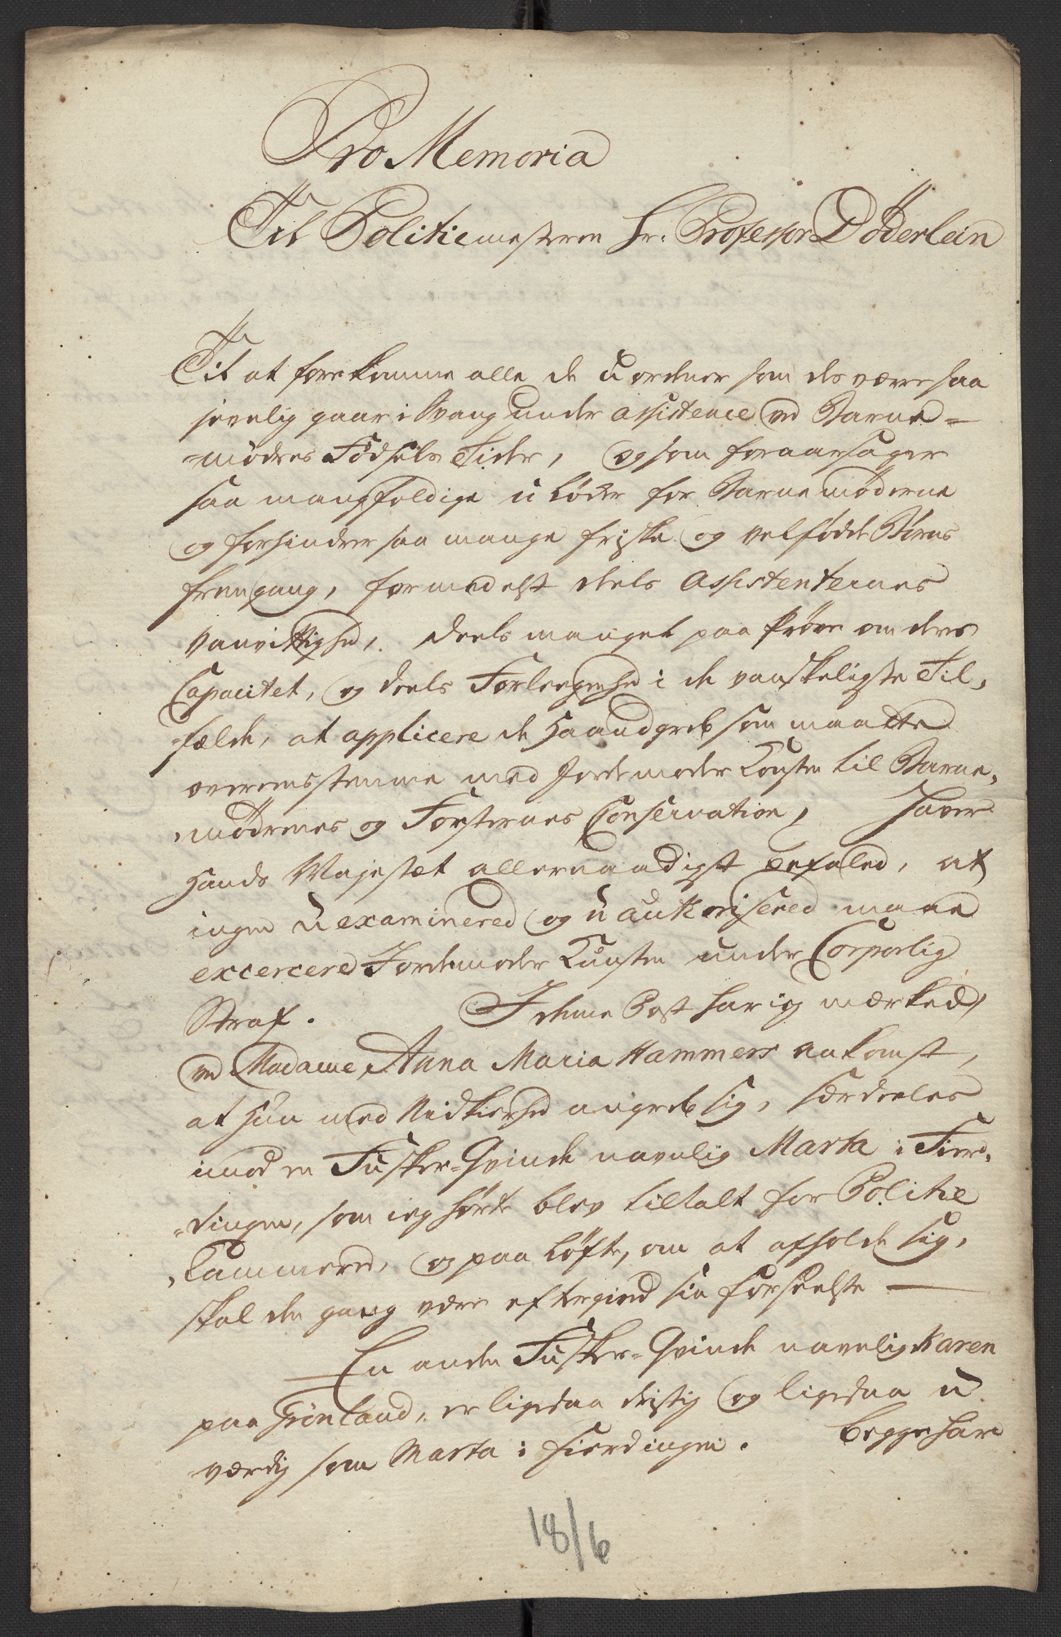 Pro Memoria
Til Politiemesteren Hr. Professor Döderlein
Til at forekomme alle de uordener som des værre saa
jevnlig gaar i Svang under assistence ved Barne=
=mødres Fødsels Tider, og som foraarsager
saa mangfoldige u løder for Barnemøderne
og forhindrer saa mange friske og velfødde Börns
fremgang, formedelst deels Assistenternes
vanvittighed, deels manget paa Prøve om deres
Capacitet, og deels Forleegenhed i de vanskeligste Til,
fælde, at applicere de Haandgreb som maatte
overeensstemme med Jordemoder Konsten til Barne,
,mødrenes og Fosternes Conservation, Haver
Hands Majestæt allernaadigst befaled, at
ingen u examinered og u autoriséred maae
excercere Jordemoder Kunsten under Corporlig
Straf. I denne Post har ieg mærked,
ved Madame Anna Maria Hammers ankomst,
at hun med Nidkierhed angreb sig, særdeeles
imod en Fusker=Qvinde navnlig Marta i Fier,
=dingen, som ieg hørte blev tiltalt for Politie
,Cammeret, og paa løfte, om at afholde sig,
skal den gang være eftergived sin forseelse —
En anden Fusker=Qvinde navnlig Karen
paa Grönland, er ligesaa dristig og ligesaa u
værdig som Marta i Fierdingen. begge har
18/6